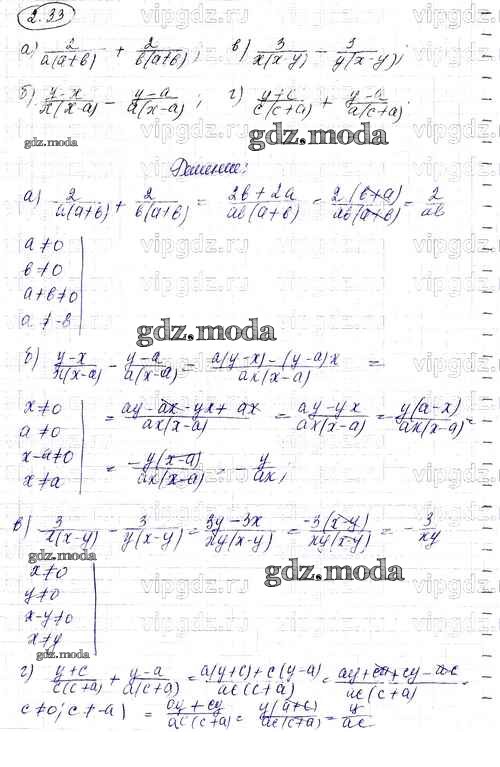 2.33
а) 2/(a(a+b)) + 2/(b(a+b)); в) 3/(x(x-y)) - 3/(y(x-y));
б) (y-x)/(x(x-a)) - (y-a)/(a(x-a)); г) (y+c)/(c(c+a)) + (y-a)/(a(c+a)).
gdz.moda
gdz.moda
Решение:
а) 2/(a(a+b)) + 2/(b(a+b)) = (2b+2a)/(ab(a+b)) = 2(b+a)/(ab(a+b)) = 2/(ab)
a≠0
b≠0
a+b≠0
a≠-b
gdz.moda
б) (y-x)/(x(x-a)) - (y-a)/(a(x-a)) = (a(y-x)-(y-a)x)/(ax(x-a)) =
x≠0 = (ay-ax-yx+ax)/(ax(x-a)) = (ay-yx)/(ax(x-a)) = y(a-x)/(ax(x-a)) =
a≠0
x-a≠0 = -y(x-a)/(ax(x-a)) = - y/(ax);
x≠a
в) 3/(x(x-y)) - 3/(y(x-y)) = (3y-3x)/(xy(x-y)) = -3(x-y)/(xy(x-y)) = - 3/(xy)
x≠0
gdz.moda
y≠0
x-y≠0
x≠y
gdz.moda
г) (y+c)/(c(c+a)) + (y-a)/(a(c+a)) = (a(y+c)+c(y-a))/(ac(c+a)) = (ay+ca+cy-ac)/(ac(c+a)) =
c≠0; c≠-a) = (ay+cy)/(ac(c+a)) = y(a+c)/(ac(c+a)) = y/(ac)
vipgdz.ru